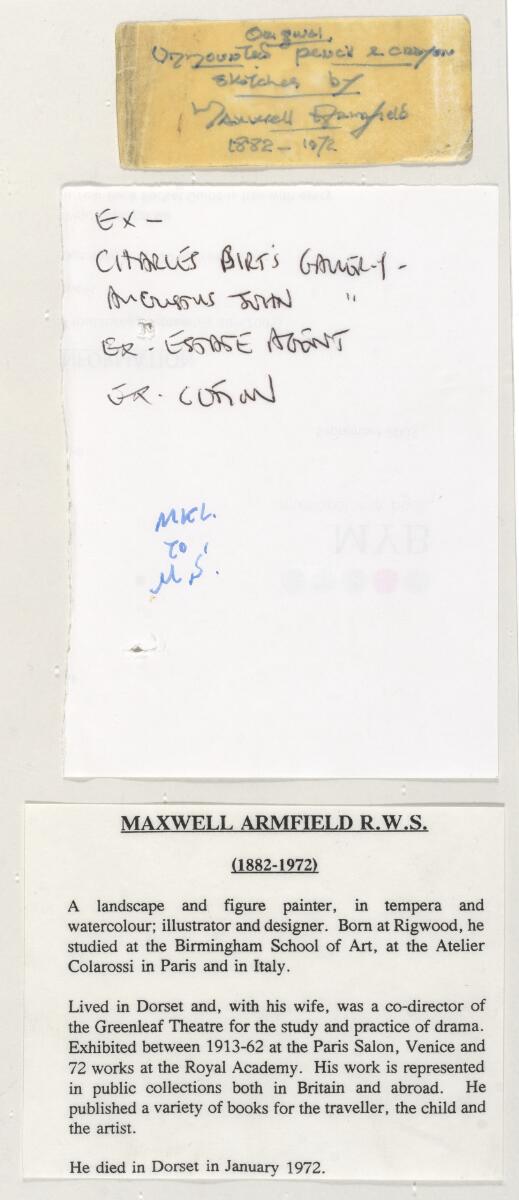 Original,
Unmounted pencil & crayon
sketches by
Maxwell Armfield
1882 - 1972
EX -
CHARLES BIRT'S GALLERY -
AUGUSTUS JOHN "
EX - ESTATE AGENT
EX -
MKL.
TO
M S.
MYB
MAXWELL ARMFIELD R.W.S.
(1882-1972)
A landscape and figure painter, in tempera and
watercolour; illustrator and designer. Born at Rigwood, he
studied at the Birmingham School of Art, at the Atelier
Colarossi in Paris and in Italy.
Lived in Dorset and, with his wife, was a co-director of
the Greenleaf Theatre for the study and practice of drama.
Exhibited between 1913-62 at the Paris Salon, Venice and
72 works at the Royal Academy. His work is represented
in public collections both in Britain and abroad. He
published a variety of books for the traveller, the child and
the artist.
He died in Dorset in January 1972.